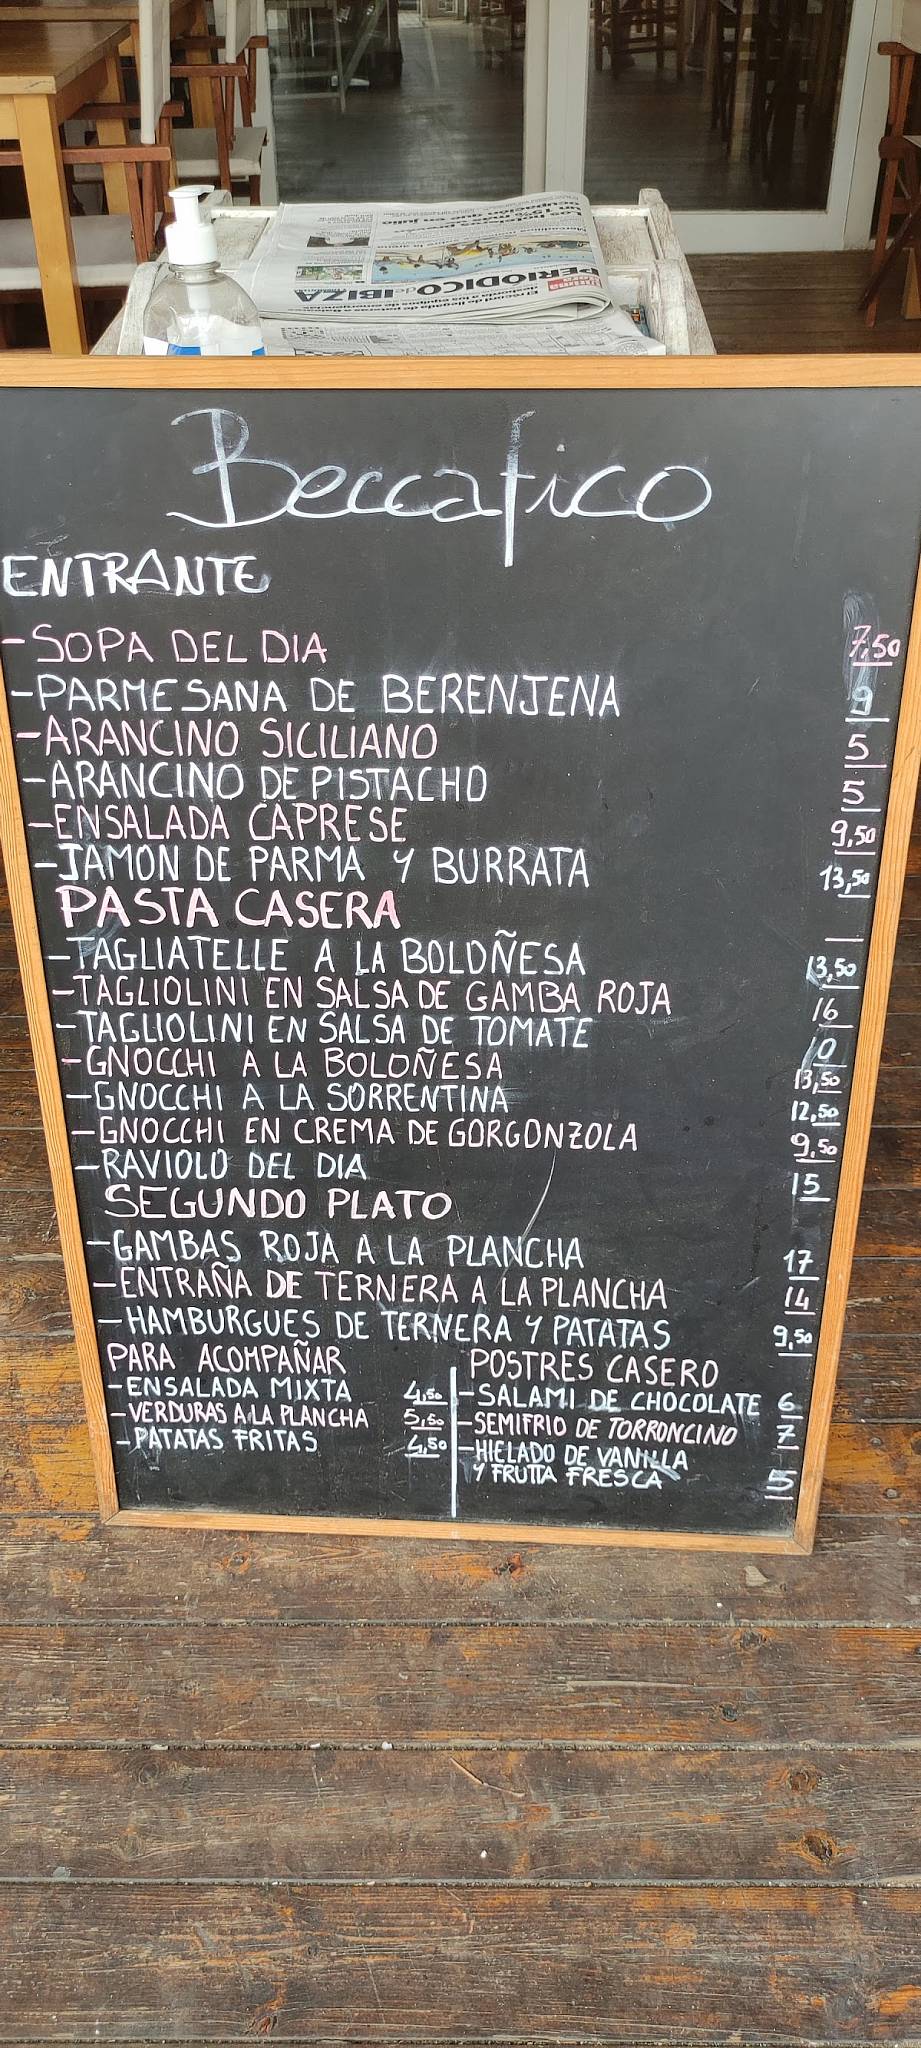 PERIODICO de IBIZA
Beccafico
ENTRANTE
-SOPA DEL DIA 7,50
-PARMESANA DE BERENJENA 9
-ARANCINO SICILIANO 5
-ARANCINO DE PISTACHO 5
-ENSALADA CAPRESE 9,50
-JAMON DE PARMA Y BURRATA 13,50
PASTA CASERA
-TAGLIATELLE A LA BOLOÑESA 13,50
-TAGLIOLINI EN SALSA DE GAMBA ROJA 16
-TAGLIOLINI EN SALSA DE TOMATE 10
-GNOCCHI A LA BOLOÑESA 13,50
-GNOCCHI A LA SORRENTINA 12,50
-GNOCCHI EN CREMA DE GORGONZOLA 9,50
-RAVIOLO DEL DIA 15
SEGUNDO PLATO
-GAMBAS ROJA A LA PLANCHA 17
-ENTRAÑA DE TERNERA A LA PLANCHA 14
-HAMBURGUES DE TERNERA Y PATATAS 9,50
PARA ACOMPAÑAR
-ENSALADA MIXTA 4,50
-VERDURAS A LA PLANCHA 5,50
-PATATAS FRITAS 4,50
POSTRES CASERO
-SALAMI DE CHOCOLATE 6
-SEMIFRIO DE TORRONCINO 7
-HIELADO DE VANILLA
Y FRUTTA FRESCA 5